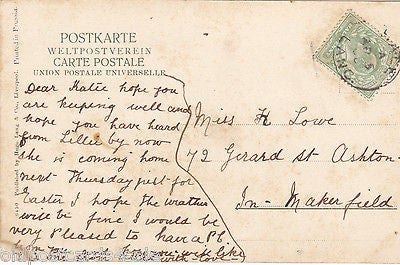 POSTKARTE
WELTPOSTVEREIN
CARTE POSTALE
UNION POSTALE UNIVERSELLE
Dear Katie hope you
are keeping well and
hope you have heard
from Lillie by now
she is coming home
next Thursday just for
Easter I hope the weather
will be fine I would be
very Pleased to have a P.C
from you
with love
Miss K Lowe
72 Gerard St Ashton-
In-Makerfield
Printed in Prussia